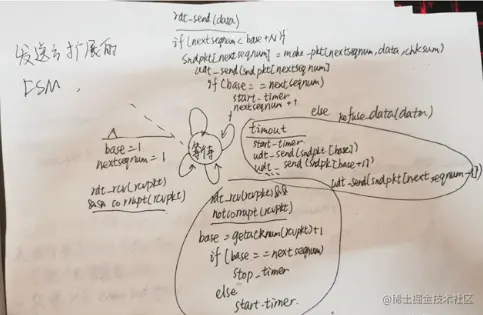 rdt_send(data)
if(nextseqnum<base+N){
sndpkt[nextseqnum]=make_pkt(nextseqnum,data,chksum)
udt_send(sndpkt[nextseqnum])
if(base==nextseqnum)
start_timer
nextseqnum++
else refuse_data(data)
发送方扩展的
FSM,
Λ
base=1
nextseqnum=1
等待
timeout
start-timer
udt-send(sndpkt[base])
udt-send(sndpkt[base+1])
udt-send(sndpkt[nextseqnum-1])
rdt_rcv(rcvpkt)
&& corrupt(rcvpkt)
rdt_rcv(rcvpkt)&&
notcorrupt(rcvpkt)
base=getacknum(rcvpkt)+1
if(base==nextseqnum)
stop_timer
else
start-timer.
@稀土掘金技术社区